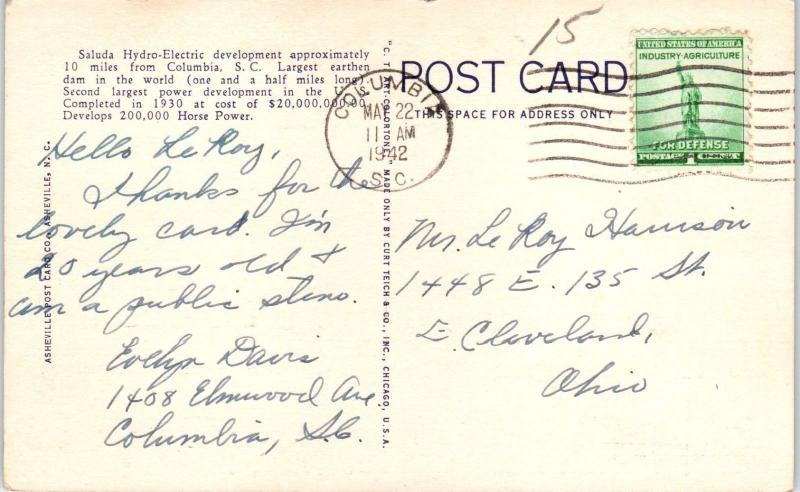 15
Saluda Hydro-Electric development approximately
10 miles from Columbia, S. C. Largest earthen
dam in the world (one and a half miles long).
Second largest power development in the
Completed in 1930 at cost of $20,000,000.00.
Develops 200,000 Horse Power.
Hello LeRoy,
Thanks for the
lovely card. I'm
20 years old &
am a public steno.
Evelyn Davis
1408 Elmwood Ave,
Columbia, S.C.
ASHEVILLE POST CARD CO., ASHEVILLE, N. C.
"C. T. ART-COLORTONE" MADE ONLY BY CURT TEICH & CO., INC., CHICAGO, U.S.A.
POST CARD
THIS SPACE FOR ADDRESS ONLY
COLUMBIA
MAY 22
11 AM
1942
S.C.
UNITED STATES OF AMERICA
INDUSTRY·AGRICULTURE
FOR DEFENSE
POSTAGE 1 CENT
Mr. Le Roy Harrison
1448 E. 135 St.
E. Cleveland,
Ohio